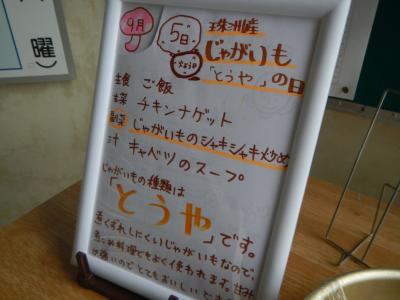 曜)
9月
5日
珠洲産
じゃがいも
「とうや」の日
主食 ご飯
主菜 チキンナゲット
副菜 じゃがいものシャキシャキ炒め
汁 キャベツのスープ
じゃがいもの種類は
「とうや」です。
煮くずれしにくいじゃがいもなので
煮こみ料理でもよく使われます。甘み
が強いのでとてもおいしいです